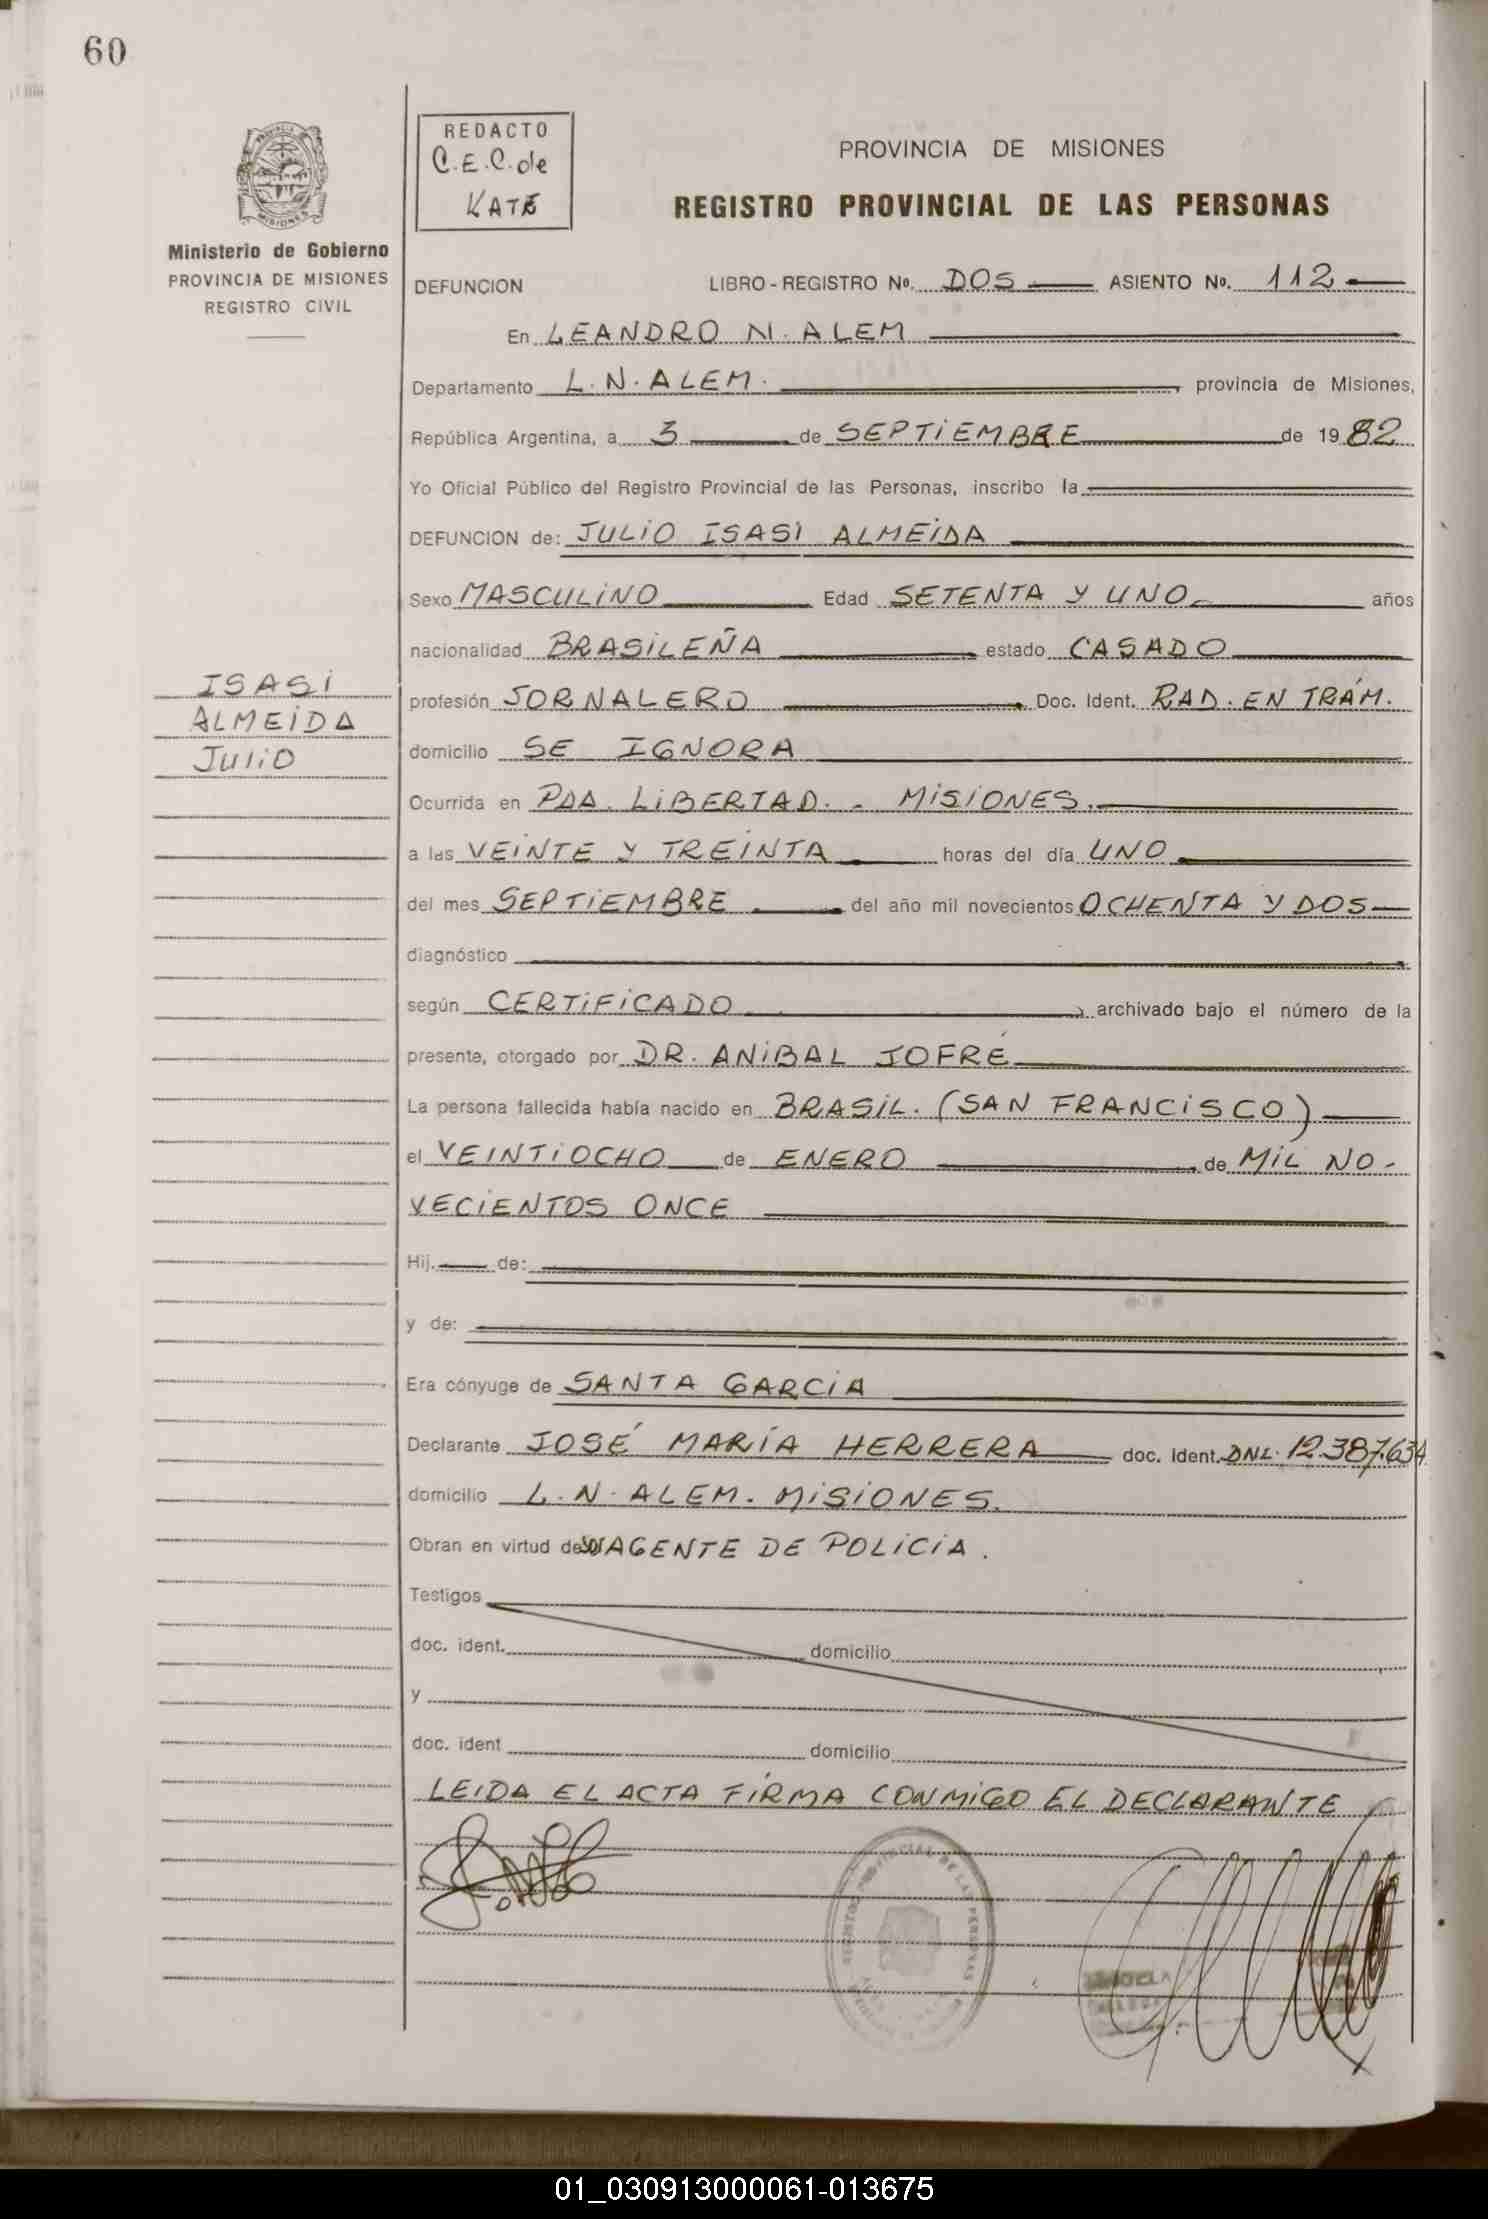 60
REDACTO
C.E.C. de
KATE
PROVINCIA DE MISIONES
REGISTRO PROVINCIAL DE LAS PERSONAS
Ministerio de Gobierno
PROVINCIA DE MISIONES
REGISTRO CIVIL
DEFUNCION LIBRO - REGISTRO No. DOS ASIENTO No. 112
En LEANDRO N. ALEM
Departamento L. N. ALEM. , provincia de Misiones,
República Argentina, a 3 de SEPTIEMBRE de 1982
Yo Oficial Público del Registro Provincial de las Personas, inscribo la
DEFUNCION de: JULIO ISASI ALMEIDA
Sexo MASCULINO Edad SETENTA Y UNO años
nacionalidad BRASILEÑA estado CASADO
ISASI
ALMEIDA
JULIO
profesión JORNALERO Doc. Ident. RAD. EN TRÁM.
domicilio SE IGNORA
Ocurrida en PDA. LIBERTAD. - MISIONES.
a las VEINTE Y TREINTA horas del día UNO
del mes SEPTIEMBRE del año mil novecientos OCHENTA Y DOS
diagnóstico
según CERTIFICADO , archivado bajo el número de la
presente, otorgado por DR. ANIBAL JOFRÉ
La persona fallecida había nacido en BRASIL. (SAN FRANCISCO)
el VEINTIOCHO de ENERO de MIL NO-
VECIENTOS ONCE
Hij. de:
y de:
Era cónyuge de SANTA GARCIA
Declarante JOSÉ MARÍA HERRERA doc. ident. DNI. 12.387.634
domicilio L. N. ALEM. MISIONES.
Obran en virtud de AGENTE DE POLICIA.
Testigos
doc. ident. domicilio
y
doc. ident domicilio
LEIDA EL ACTA FIRMA CONMIGO EL DECLARANTE
01_030913000061-013675